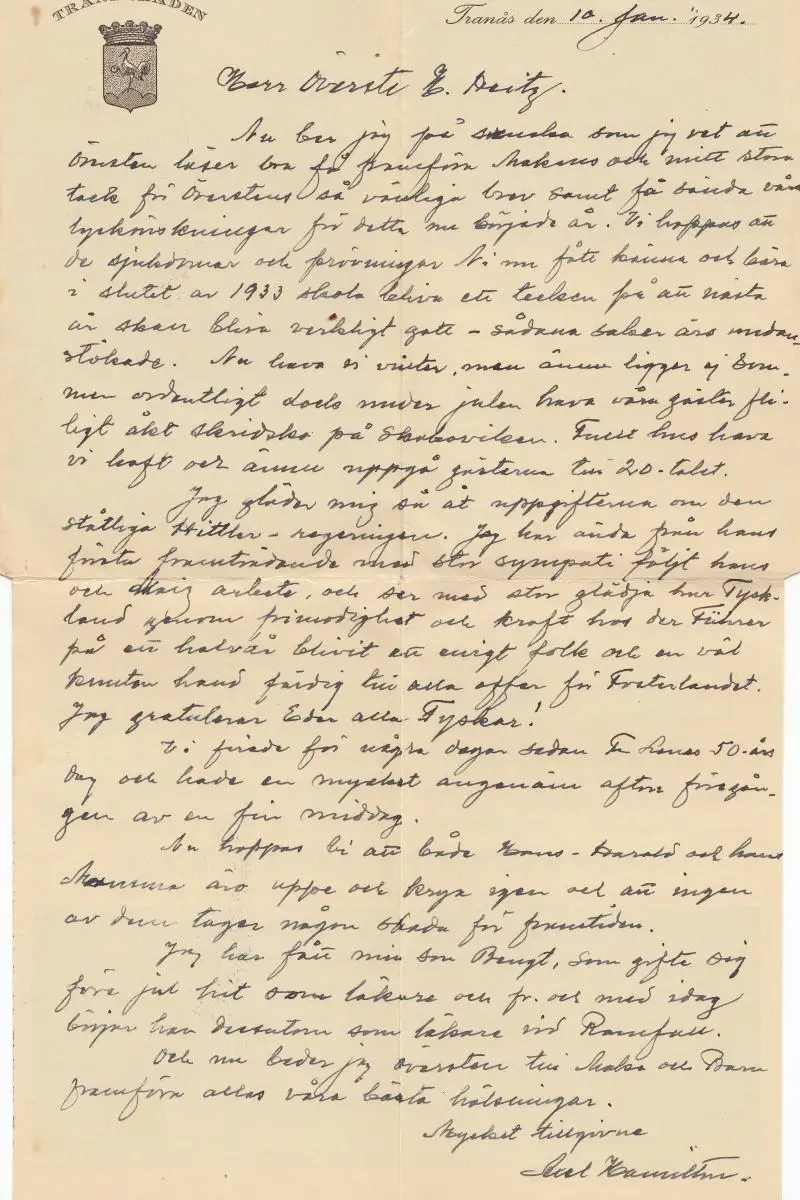 TRANÅSBADEN
Tranås den 10. Jan. 1934.
Herr Överste H. Deitz.
Nu ber jag på svenska som jag vet att
Översten läser bra få framföra Makans och mitt stora
tack för Överstens så vänliga brev samt få sända våra
lyckönskningar för detta nu började år. Vi hoppas att
de sjukdomar och prövningar Ni nu fått känna och bära
i slutet av 1933 skola bliva ett tecken på att nästa
år skall bliva verkligt gott – sådana saker äro undan-
stökade. Nu hava vi vinter, men ännu ligger ej Som-
men ordentligt docks under julen hava våra gäster fli-
ligt åkt skridsko på Skoboviken. Fullt hus hava
vi haft och ännu uppgå gästerna till 20-talet.
Jag gläder mig så åt uppgifterna om den
ståtliga Hittler-regeringen. Jag har ända från hans
första framträdande med stor sympati följt hans
och arbete, och ser med stor glädja hur Tysk-
land genom frimodighet och kraft hos der Führer
på ett halvår blivit ett enigt folk och en väl
knuten hand färdig till alla offer för Fosterlandet.
Jag gratulerar Eder alla Tyskar!
Vi firade för några dagar sedan Fru 50-års
dag och hade en mycket angenäm afton föregån-
gen av en fin middag.
Nu hoppas vi att både Hans-Harald och hans
Mamma äro uppe och krya igen och att ingen
av dem tager någon skada för framtiden.
Jag har fått min son Bengt, som gifte sig
före jul hit som läkare och fr. och med idag
börjar han dessutom som läkare vid Romefall.
Och nu beder jag översten till Maka och Barn
framföra allas våra bästa hälsningar.
Mycket tillgivne
Axel Hamilton.